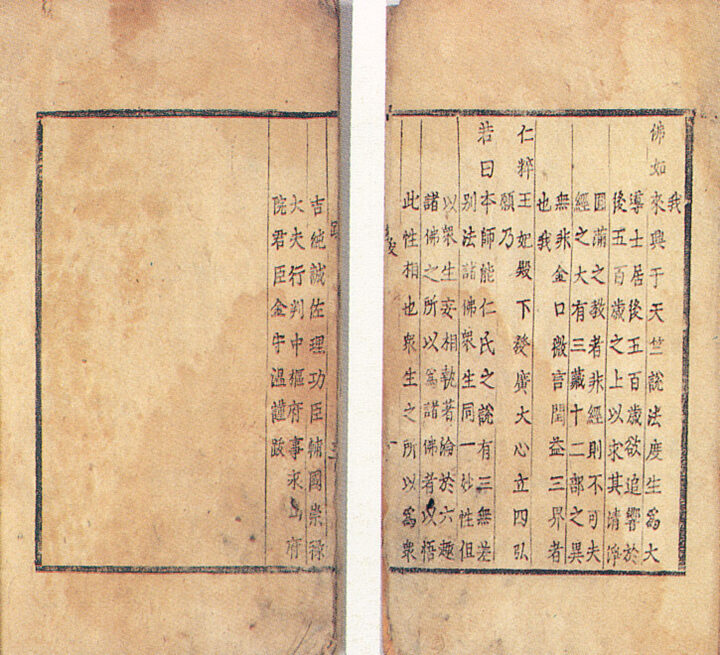 我
佛如來興于天竺說法度生爲大
導士居後五百歲欲追響於
後五百歲之上以求其清淨
圓滿之教者非經則不可夫
經之大有三藏十二部之異
無非金口微言閏益三界者
也我
仁粹王妃殿下發廣大心立四弘
願乃
若曰本師能仁氏之說有三無差
别法諸佛衆生同一妙性但
以衆生妄相執著淪於六趣
諸佛之所以爲諸佛者以悟
此性相也衆生之所以爲衆
吉純誠佐理功臣輔國崇祿
大夫行判中樞府事永山府
院君臣金守溫謹跋